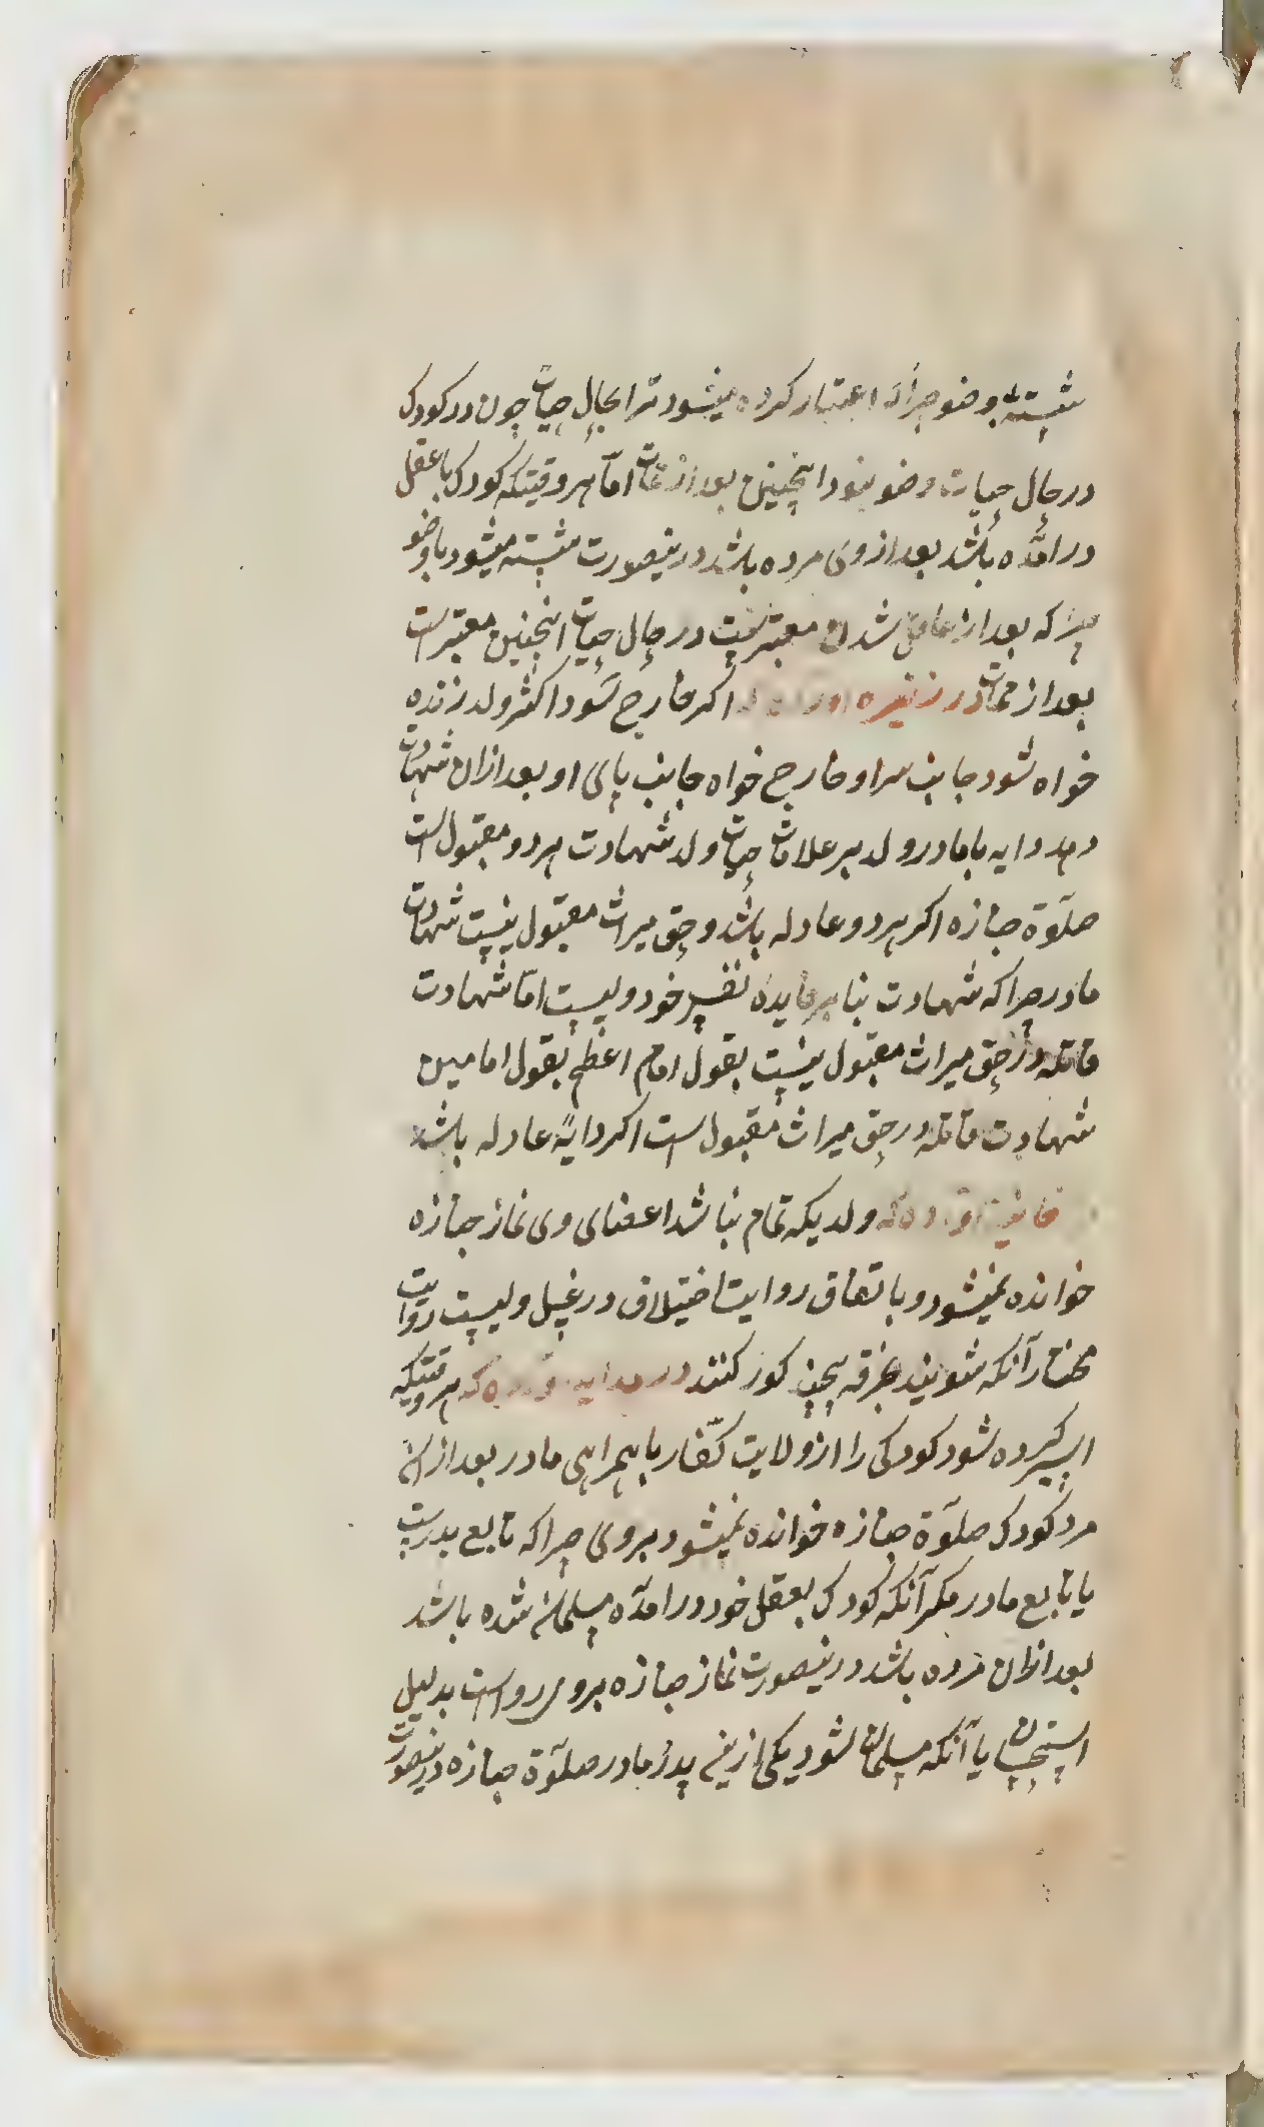 شسته بی وضو چرا که اعتبار کرده میشود ترا بحال حیات چون در کودک
در حال حیات وضو نبود اینچنین بعد از ممات اما هر وقتیکه کودک با عقل
درامده باشد بعد از وی مرده باشد درینصورت شسته میشود با وضو
چرا که بعد از عاقل شدن معتبرست در حال حیات اینچنین معتبر است
بعد از ممات در ذخیره اورده که اکر خارج شود اکثر ولد زنده
خواه شود جانب سر او خارج خواه جانب پای او بعد ازان شهادت
دهد دایه یا مادر ولد بر علامات حیات ولد شهادت هر دو مقبول است
صلوة جنازه اکر هر دو عادله باشد و حق میراث مقبول نیست شهادت
مادر چرا که شهادت بنا بر فایده نفس خود ولیست اما شهادت
قابله در حق میراث مقبول نیست بقول امام اعظم بقول امامین
شهادت قابله در حق میراث مقبول است اکر دایه عادله باشد
ولدیکه تمام نباشد اعضای وی نماز جنازه
خوانده نمیشود و باتفاق روایت اختلاف در غسل ولیست روایت
مختار آنکه شویند بخرقه پیچند کور کنند در هدایه اورده که هر وقتیکه
اسیر کرده شود کودکی را از ولایت کفار با همراهی مادر بعد ازان
مرد کودک صلوة جنازه خوانده نمیشود بروی چرا که تابع پدرست
یا تابع مادر مکر آنکه کودک بعقل خود درامده مسلمان شده باشد
بعد ازان مرده باشد درینصورت نماز جنازه بروی رواست بدلیل
استحسان یا آنکه مسلمان شود یکی ازینی پدر مادر صلوة جنازه درینصورت